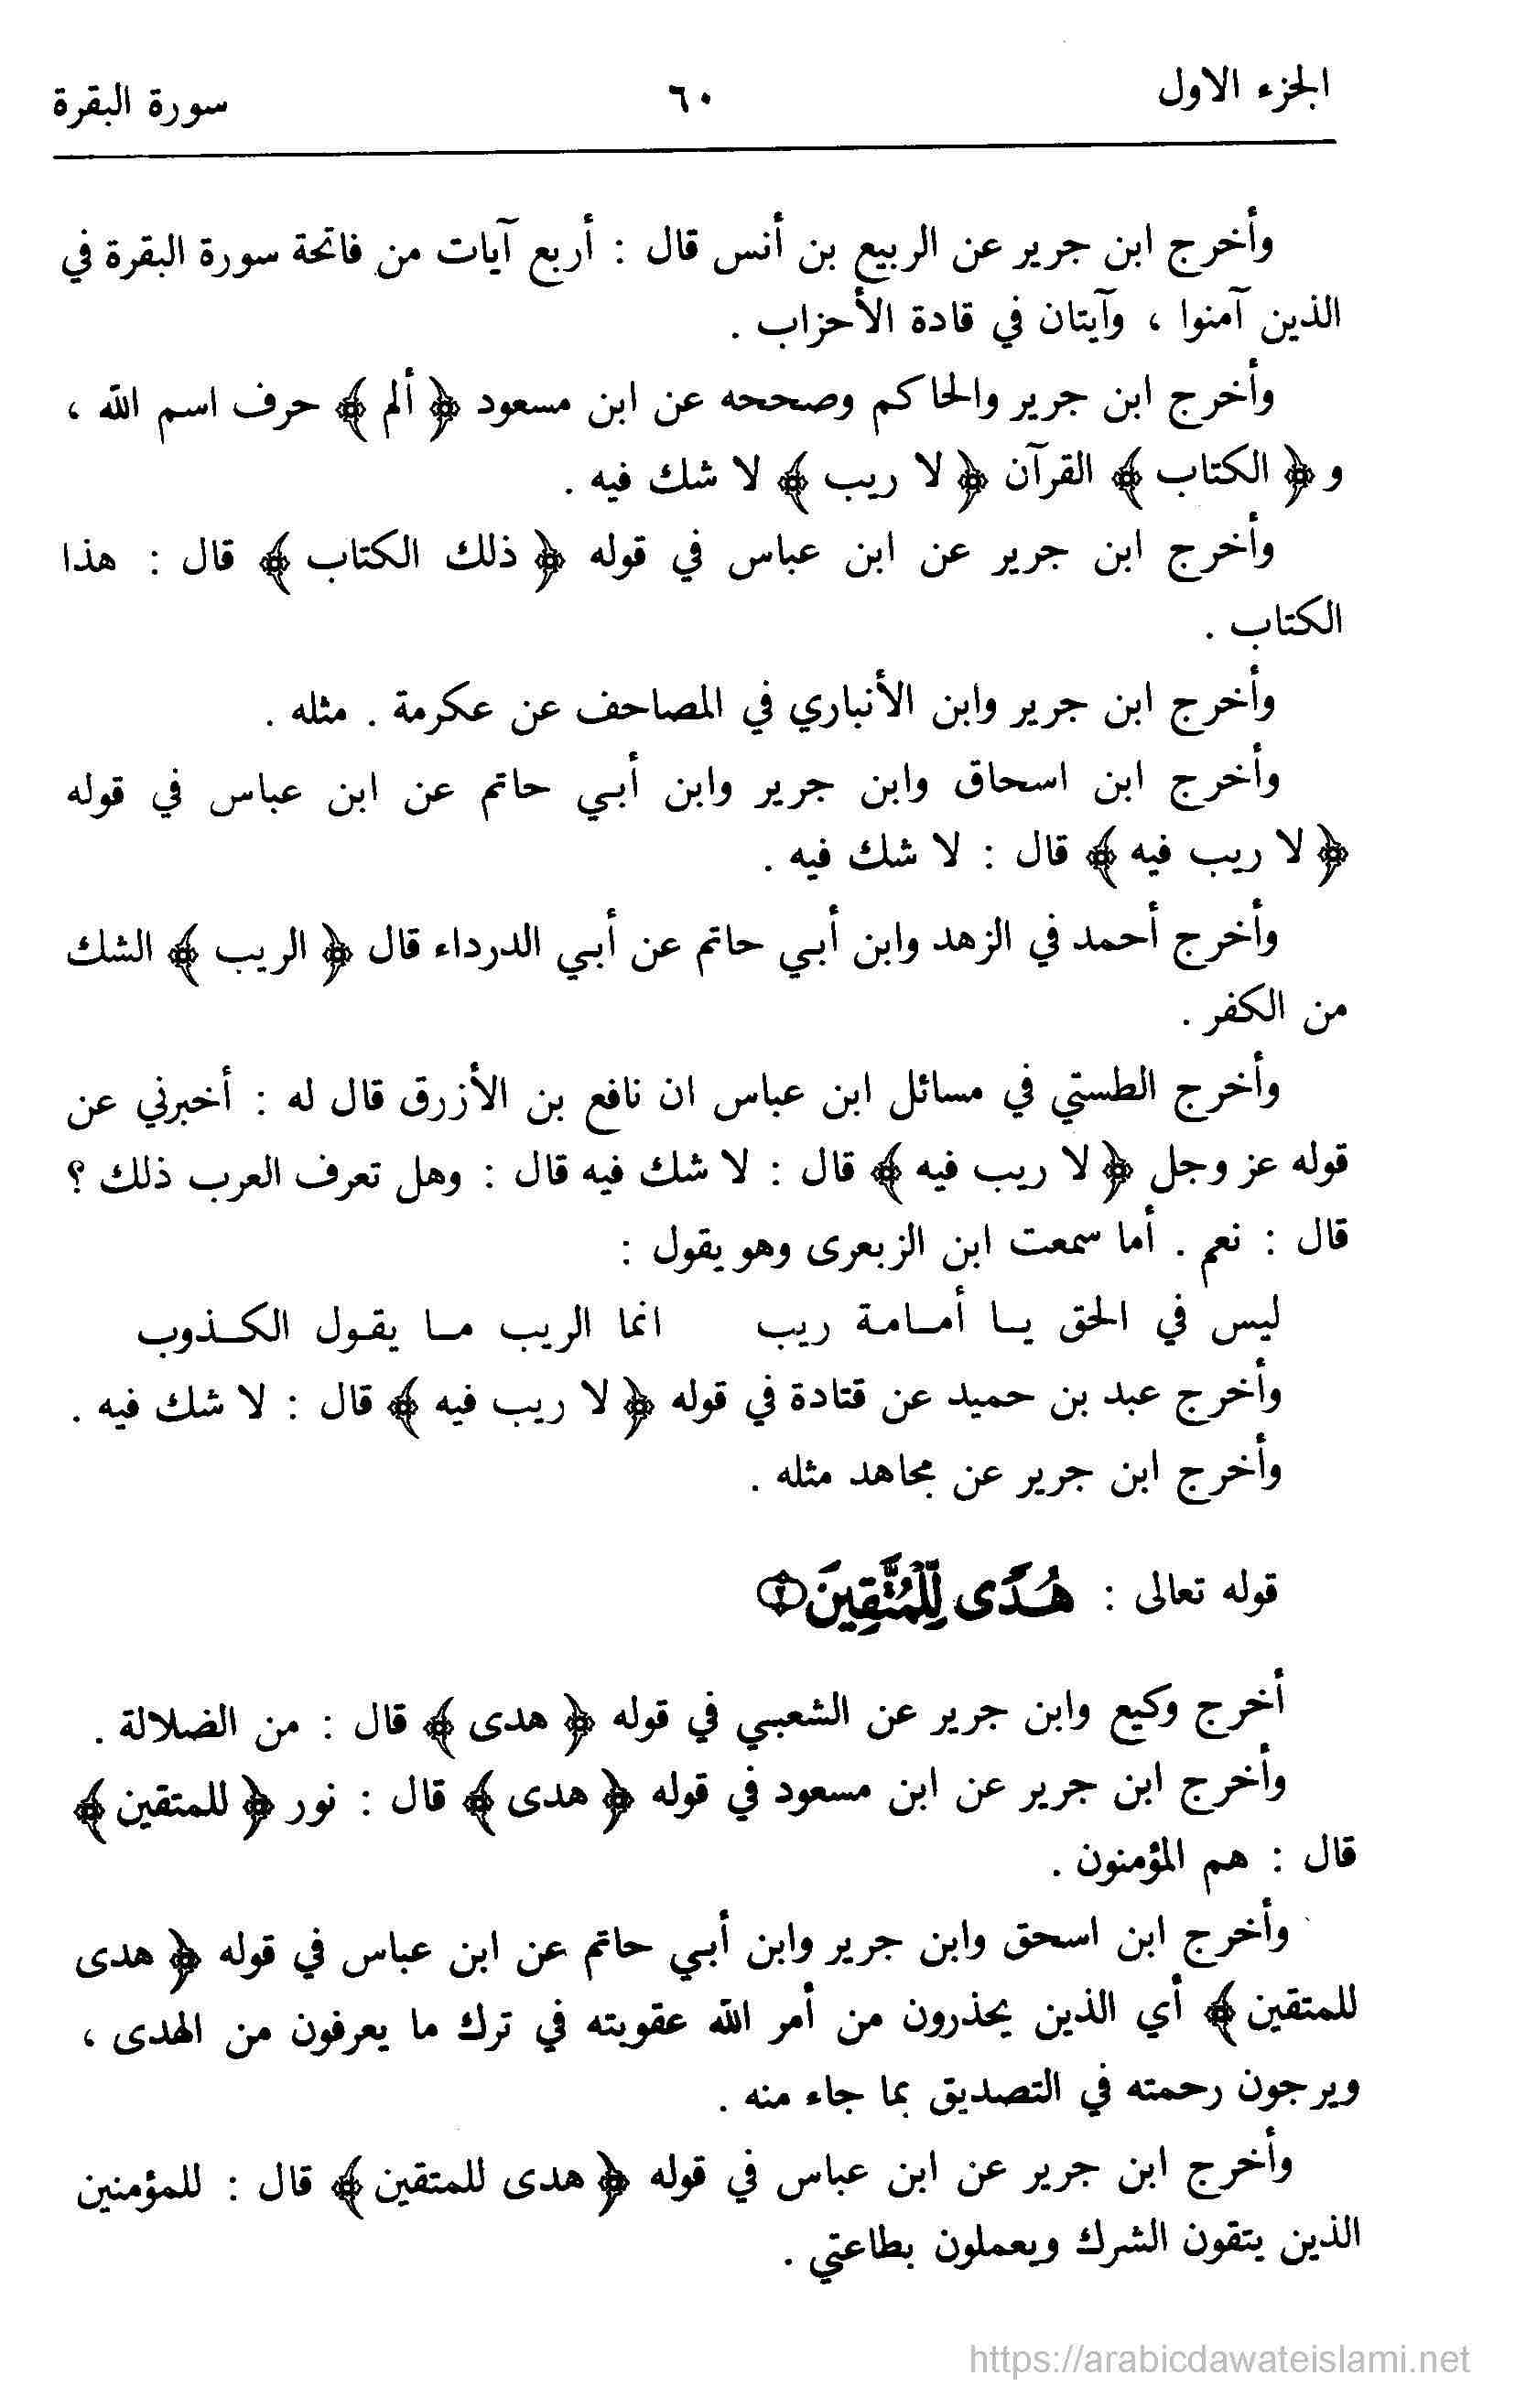 الجزء الاول ٦٠ سورة البقرة
وأخرج ابن جرير عن الربيع بن أنس قال : أربع آيات من فاتحة سورة البقرة في
الذين آمنوا ، وآيتان في قادة الأحزاب .
وأخرج ابن جرير والحاكم وصححه عن ابن مسعود ﴿ ألم ﴾ حرف اسم الله ،
و ﴿ الكتاب ﴾ القرآن ﴿ لا ريب ﴾ لا شك فيه .
وأخرج ابن جرير عن ابن عباس في قوله ﴿ ذلك الكتاب ﴾ قال : هذا
الكتاب .
وأخرج ابن جرير وابن الأنباري في المصاحف عن عكرمة . مثله .
وأخرج ابن اسحاق وابن جرير وابن أبي حاتم عن ابن عباس في قوله
﴿ لا ريب فيه ﴾ قال : لا شك فيه .
وأخرج أحمد في الزهد وابن أبي حاتم عن أبي الدرداء قال ﴿ الريب ﴾ الشك
من الكفر .
وأخرج الطستي في مسائل ابن عباس ان نافع بن الأزرق قال له : أخبرني عن
قوله عز وجل ﴿ لا ريب فيه ﴾ قال : لا شك فيه قال : وهل تعرف العرب ذلك ؟
قال : نعم . أما سمعت ابن الزبعرى وهو يقول :
ليس في الحق يـا أمـامـة ريب انما الريب مـا يقـول الكـذوب
وأخرج عبد بن حميد عن قتادة في قوله ﴿ لا ريب فيه ﴾ قال : لا شك فيه .
وأخرج ابن جرير عن مجاهد مثله .
قوله تعالى : هُدًى لِّلْمُتَّقِينَ ٢
أخرج وكيع وابن جرير عن الشعبي في قوله ﴿ هدى ﴾ قال : من الضلالة .
وأخرج ابن جرير عن ابن مسعود في قوله ﴿ هدى ﴾ قال : نور ﴿ للمتقين ﴾
قال : هم المؤمنون .
وأخرج ابن اسحق وابن جرير وابن أبي حاتم عن ابن عباس في قوله ﴿ هدى
للمتقين ﴾ أي الذين يحذرون من أمر الله عقوبته في ترك ما يعرفون من الهدى ،
ويرجون رحمته في التصديق بما جاء منه .
وأخرج ابن جرير عن ابن عباس في قوله ﴿ هدى للمتقين ﴾ قال : للمؤمنين
الذين يتقون الشرك ويعملون بطاعتي .
https://arabicdawateislami.net